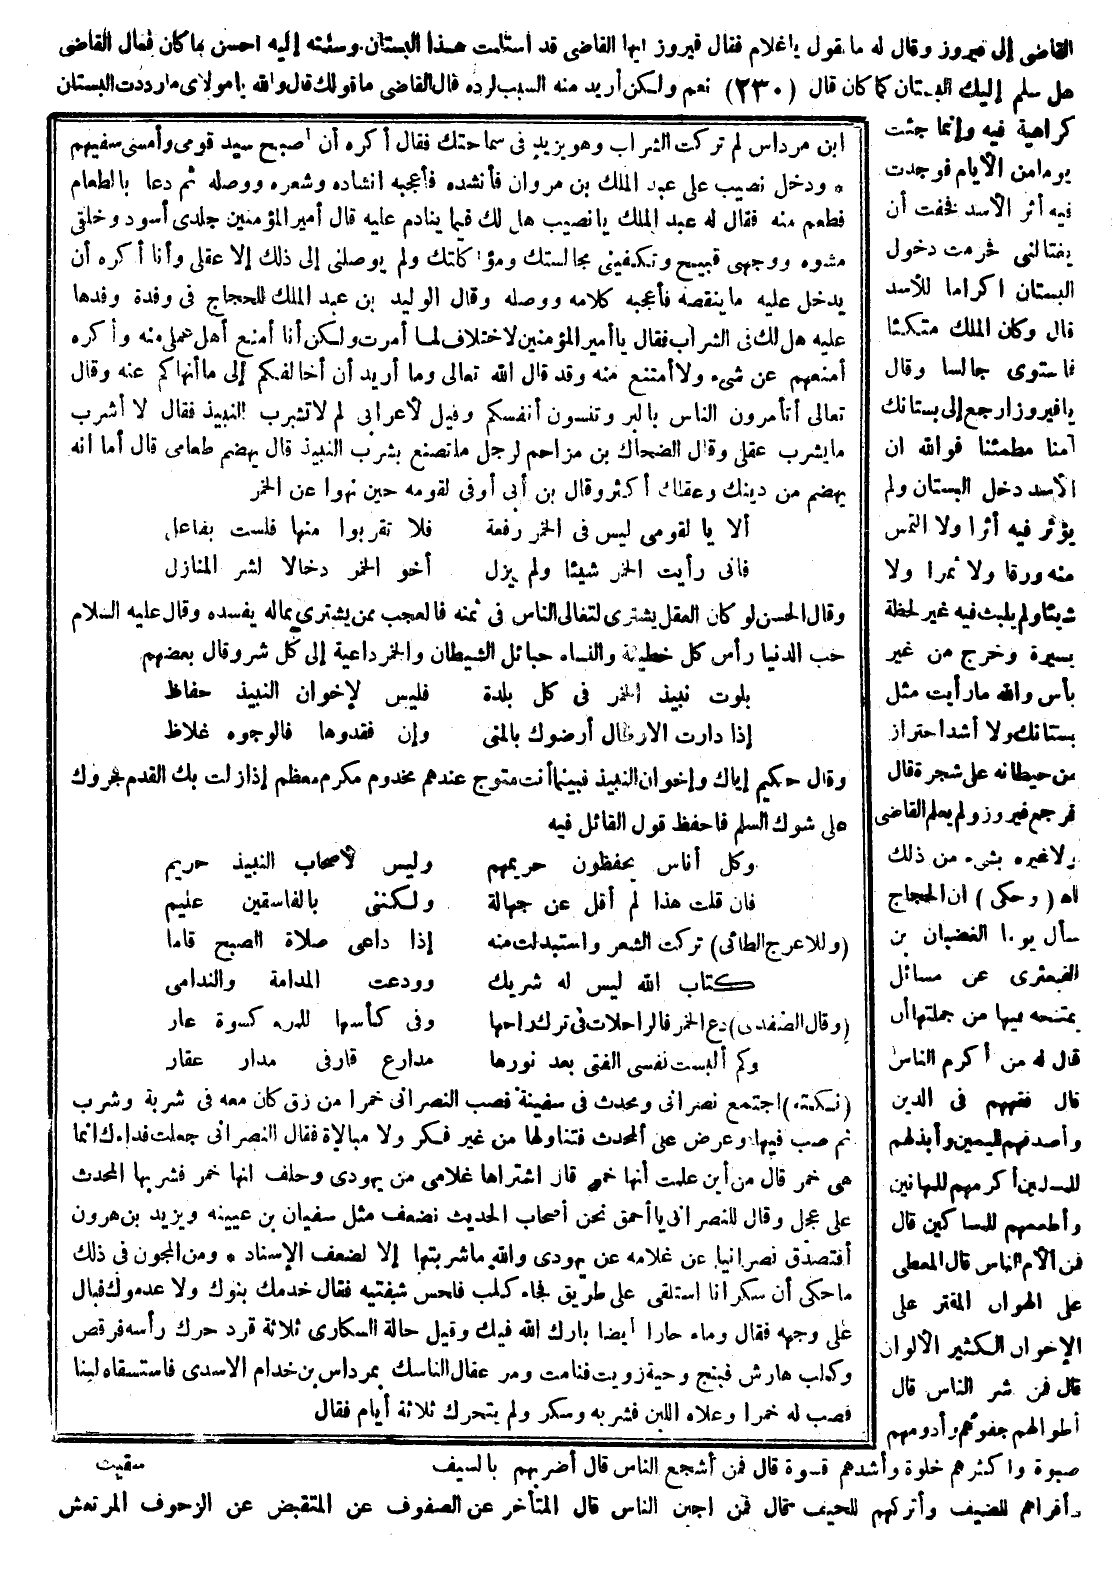 القاضى إلى فيروز وقال له ما تقول ياغلام فقال فيروز ايها القاضى قد استلمت هذا البستان وسلمته إليه احسن ما كان فقال القاضى
هل سلم إليك البستان كما كان قال (٢٣٠) نعم ولكن أريد منه السبب لرده قال القاضى ما قولك قال والله يامولاى مارددت البستان
كراهية فيه وإنما جئت
يوما من الأيام فوجدت
فيه أثر الأسد فخفت أن
يغتالنى فحرمت دخول
البستان اكراما للأسد
قال وكان الملك متكئا
فاستوى جالسا وقال
يافيروز ارجع إلى بستانك
آمنا مطمئنا فوالله ان
الأسد دخل البستان ولم
يؤثر فيه أثرا ولا التمس
منه ورقا ولا ثمرا ولا
شيئا ولم يلبث فيه غير لحظة
يسيرة وخرج من غير
بأس والله مارأيت مثل
بستانك ولا أشد احتراز
من حيطانه على شجرة قال
فرجع فيروز ولم يعلم القاضى
ولا غيره بشىء من ذلك
اه (وحكى) ان الحجاج
سأل يوما الغضبان بن
القبعثرى عن مسائل
يمتحنه فيها من جملتها أن
قال له من أكرم الناس
قال أفقههم فى الدين
وأصدقهم لليمين وأبذلهم
للمسلمين أكرمهم للمهانين
وأطعمهم للمساكين قال
فمن ألأم الناس قال المعطى
على الهوان المقتر على
الإخوان الكثير الألوان
قال فمن شر الناس قال
أطولهم جفوة وأدومهم
صبوة واكثرهم خلوة وأشدهم قسوة قال فمن أشجع الناس قال أضربهم بالسيف
وأقراهم للضيف وأتركهم للحيف قال فمن اجبن الناس قال المتأخر عن الصفوف عن المنقبض عن الزحوف المرتعش
ابن مرداس لم تركت الشراب وهو يزيد فى سماحتك فقال أكره أن أصبح سيد قومى وأمسى سفيههم
* ودخل نصيب على عبد الملك بن مروان فأنشده فأعجبه انشاده وشعره ووصله ثم دعا بالطعام
فطعم منه فقال له عبد الملك يانصيب هل لك فيما ينادم عليه قال أمير المؤمنين جلدى أسود وخلقى
مشوه ووجهى قبيح وتكفينى مجالستك ومؤاكلتك ولم يوصلنى إلى ذلك إلا عقلى وأنا أكره أن
يدخل عليه ما ينقصه فأعجبه كلامه ووصله وقال الوليد بن عبد الملك للحجاج فى وفدة وفدها
عليه هل لك فى الشراب فقال ياأمير المؤمنين لا ختلاف لما أمرت ولكن أنا أمنع أهل عملى منه وأكره
أمنعهم عن شىء ولا أمتنع منه وقد قال الله تعالى وما أريد أن أخالفكم إلى ما أنهاكم عنه وقال
تعالى أتأمرون الناس بالبر وتنسون أنفسكم وقيل لأعرابى لم لا تشرب النبيذ فقال لا أشرب
ما يشرب عقلى وقال الضحاك بن مزاحم لرجل ما تصنع بشرب النبيذ قال يهضم طعامى قال أما انه
يهضم من دينك وعقلك أكثر وقال بن أبى أوفى لقومه حين نهوا عن الخمر
ألا يا لقومى ليس فى الخمر رفعة فلا تقربوا منها فلست بفاعل
فانى رأيت الخمر شيئا ولم يزل أخو الخمر دخالا لشر المنازل
وقال الحسن لو كان العقل يشترى لتغالى الناس فى ثمنه فالعجب من يشترى بماله يفسده وقال عليه السلام
حب الدنيا رأس كل خطيئة والنساء حبائل الشيطان والخمر داعية إلى كل شر وقال بعضهم
بلوت نبيذ الخمر فى كل بلدة فليس لإخوان النبيذ حفاظ
إذا دارت الارطال أرضوك بالمنى وإن فقدوها فالوجوه غلاظ
وقال حكيم إياك وإخوان النبيذ فبينما أنت متوج عندهم مخدوم مكرم معظم إذا زلت بك القدم فجروك
على شوك السلم فاحفظ قول القائل فيه
وكل أناس يحفظون حريمهم وليس لأصحاب النبيذ حريم
فان قلت هذا لم أقل عن جهالة ولكننى بالفاسقين عليم
(وللاعرج الطائى) تركت الشعر واستبدلت منه إذا داعى صلاة الصبح قاما
كتاب الله ليس له شريك وودعت المدامة والندامى
(وقال الصفدى) دع الخمر فالراحلات فى ترك راحها وفى كأسها للمرء كسوة عار
وكم ألبست نفسى الفتى بعد نورها مدارع قارفى مدار عقار
(نكتة) اجتمع نصرانى ومحدث فى سفينة فصب النصرانى خمرا من زق كان معه فى شربة وشرب
ثم صب فيها وعرض على المحدث فتناولها من غير فكر ولا مبالاة فقال النصرانى جعلت فداءك انما
هى خمر قال من أين علمت أنها خمر قال اشتراها غلامى من يهودى وحلف انها خمر فشربها المحدث
على عجل وقال للنصرانى ياأحمق نحن أصحاب الحديث نضعف مثل سفيان بن عيينه ويزيد بن هرون
أفتصدق نصرانيا عن غلامه عن يهودى والله ماشربتها إلا لضعف الإسناد * ومن المجون فى ذلك
ماحكى أن سكرانا استلقى على طريق فجاء كلب فلحس شفتيه فقال خدمك بنوك ولا عدموك فبال
على وجهه فقال وماء حارا أيضا بارك الله فيك وقيل حالة السكارى ثلاثة قرد حرك رأسه فرقص
وكلب هارش فنبح وحية زويت فنامت ومر عقال الناسك بمرداس بن خدام الاسدى فاستسقاه لبنا
فصب له خمرا وعلاه اللبن فشربه وسكر ولم يتحرك ثلاثة أيام فقال
سقيت